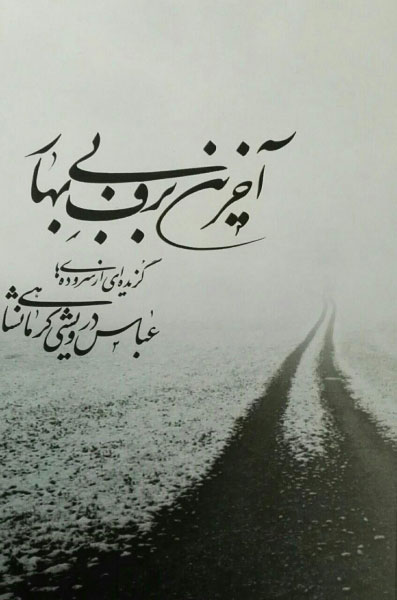 آخرین برفِ بی بهار
گزیده‌ای از سروده‌های؛
عباس درویشی کرمانشاهی